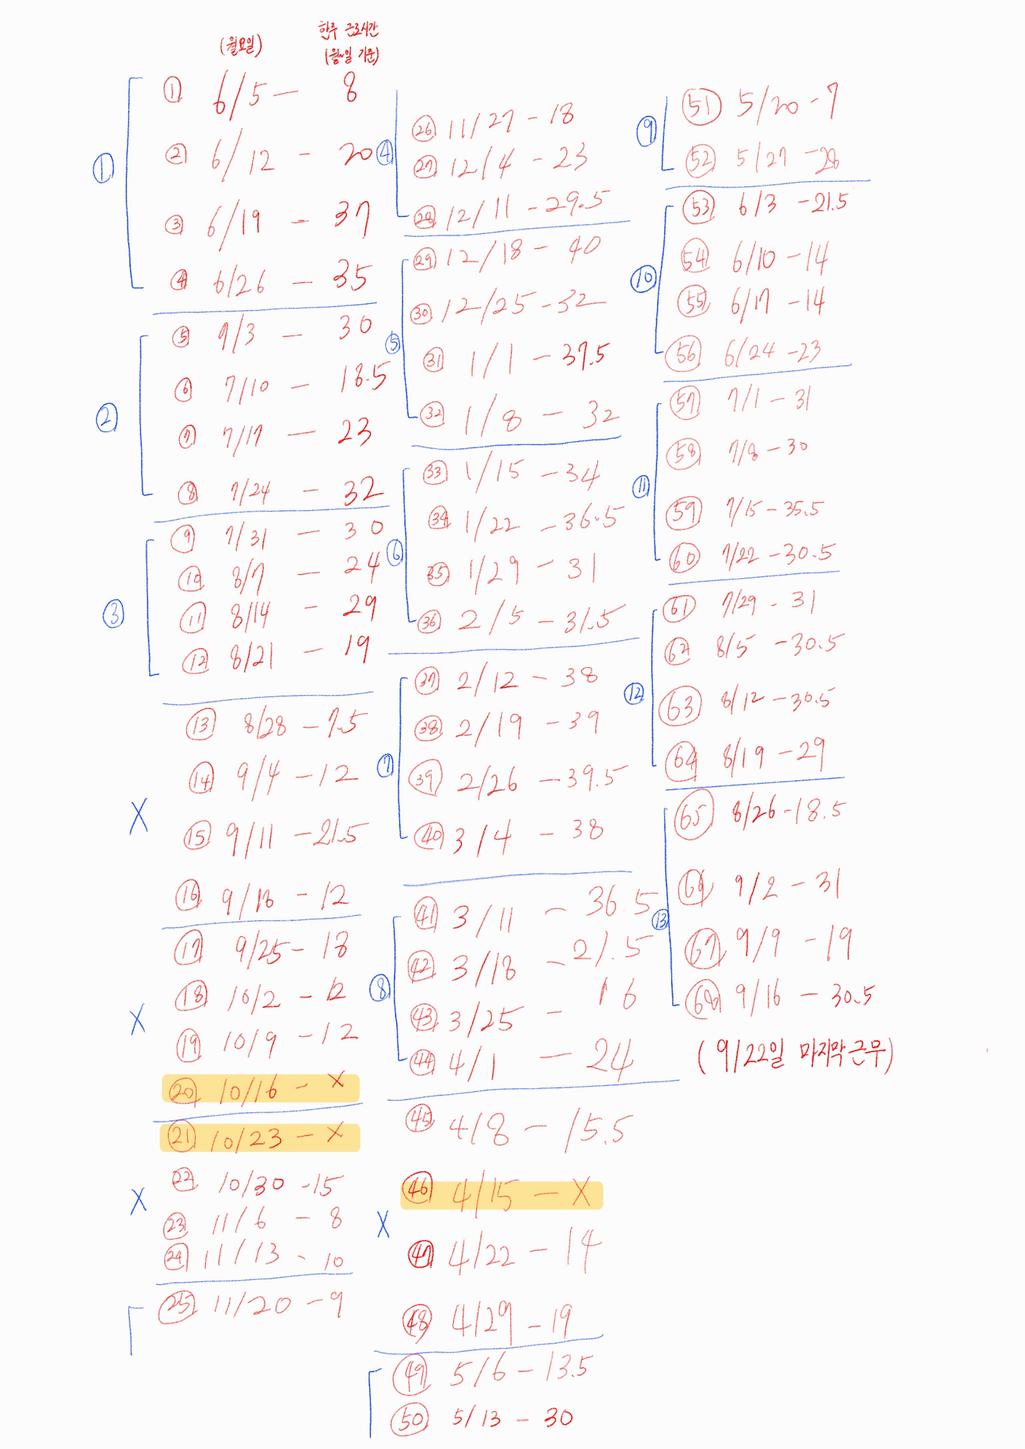 (월요일)
한주 근로시간
(월~일 기준)
① ① 6/5 - 8
② 6/12 - 20
③ 6/19 - 37
④ 6/26 - 35
② ⑤ 7/3 - 30
⑥ 7/10 - 18.5
⑦ 7/17 - 23
⑧ 7/24 - 32
③ ⑨ 7/31 - 30
⑩ 8/7 - 24
⑪ 8/14 - 29
⑫ 8/21 - 19
X ⑬ 8/28 - 7.5
⑭ 9/4 - 12
⑮ 9/11 - 21.5
⑯ 9/18 - 12
X ⑰ 9/25 - 18
⑱ 10/2 - 12
⑲ 10/9 - 12
⑳ 10/16 - X
X ㉑ 10/23 - X
㉒ 10/30 - 15
㉓ 11/6 - 8
㉔ 11/13 - 10
㉕ 11/20 - 9
④ ㉖ 11/27 - 18
㉗ 12/4 - 23
㉘ 12/11 - 29.5
⑤ ㉙ 12/18 - 40
㉚ 12/25 - 32
㉛ 1/1 - 37.5
㉜ 1/8 - 32
⑥ ㉝ 1/15 - 34
㉞ 1/22 - 36.5
㉟ 1/29 - 31
㊱ 2/5 - 31.5
⑦ ㊲ 2/12 - 38
㊳ 2/19 - 39
㊴ 2/26 - 39.5
㊵ 3/4 - 38
⑧ ㊶ 3/11 - 36.5
㊷ 3/18 - 21.5
㊸ 3/25 - 16
㊹ 4/1 - 24
X ㊺ 4/8 - 15.5
㊻ 4/15 - X
㊼ 4/22 - 14
㊽ 4/29 - 19
㊾ 5/6 - 13.5
㊿ 5/13 - 30
⑨ (51) 5/20 - 7
(52) 5/27 - 28
⑩ (53) 6/3 - 21.5
(54) 6/10 - 14
(55) 6/17 - 14
(56) 6/24 - 23
⑪ (57) 7/1 - 31
(58) 7/8 - 30
(59) 7/15 - 35.5
(60) 7/22 - 30.5
⑫ (61) 7/29 - 31
(62) 8/5 - 30.5
(63) 8/12 - 30.5
(64) 8/19 - 29
⑬ (65) 8/26 - 18.5
(66) 9/2 - 31
(67) 9/9 - 19
(68) 9/16 - 30.5
(9/22일 마지막 근무)